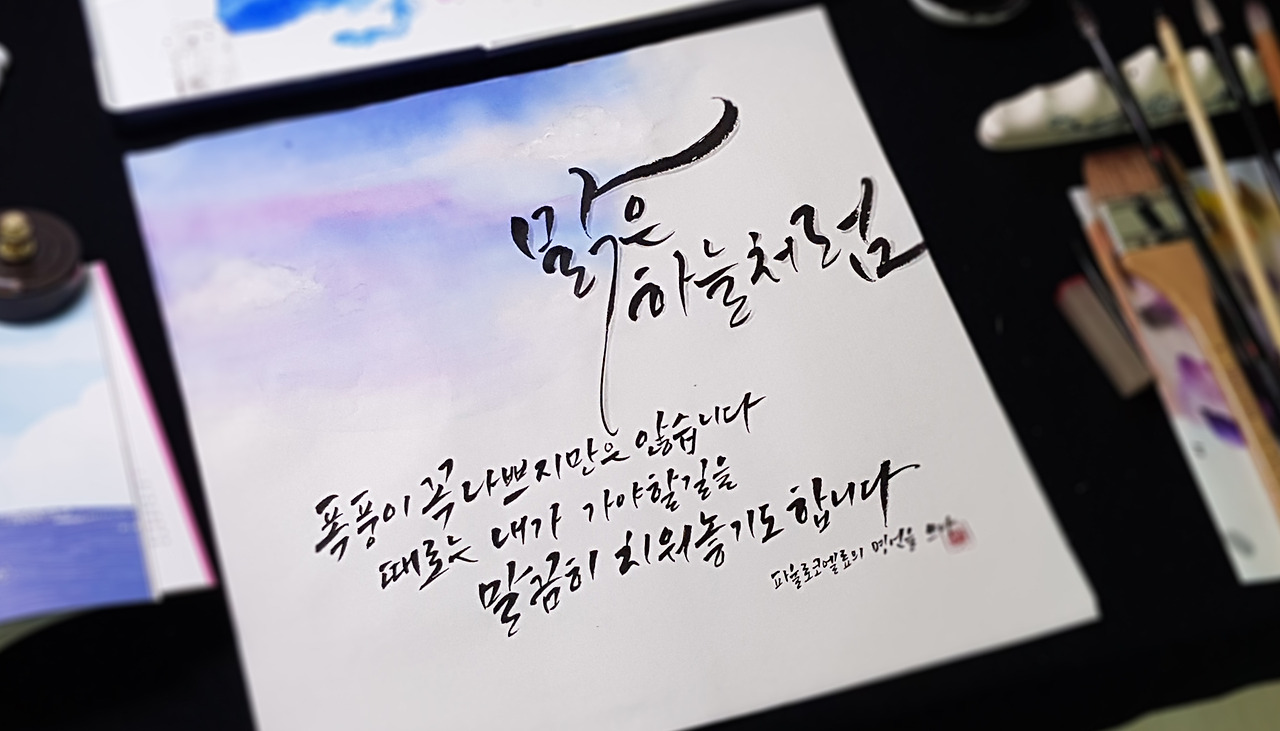 맑은
하늘처럼
폭풍이 꼭 나쁘지만은 않습니다
때로는 내가 가야할길을
말끔히 치워놓기도 합니다
파울로코엘료의 명언을